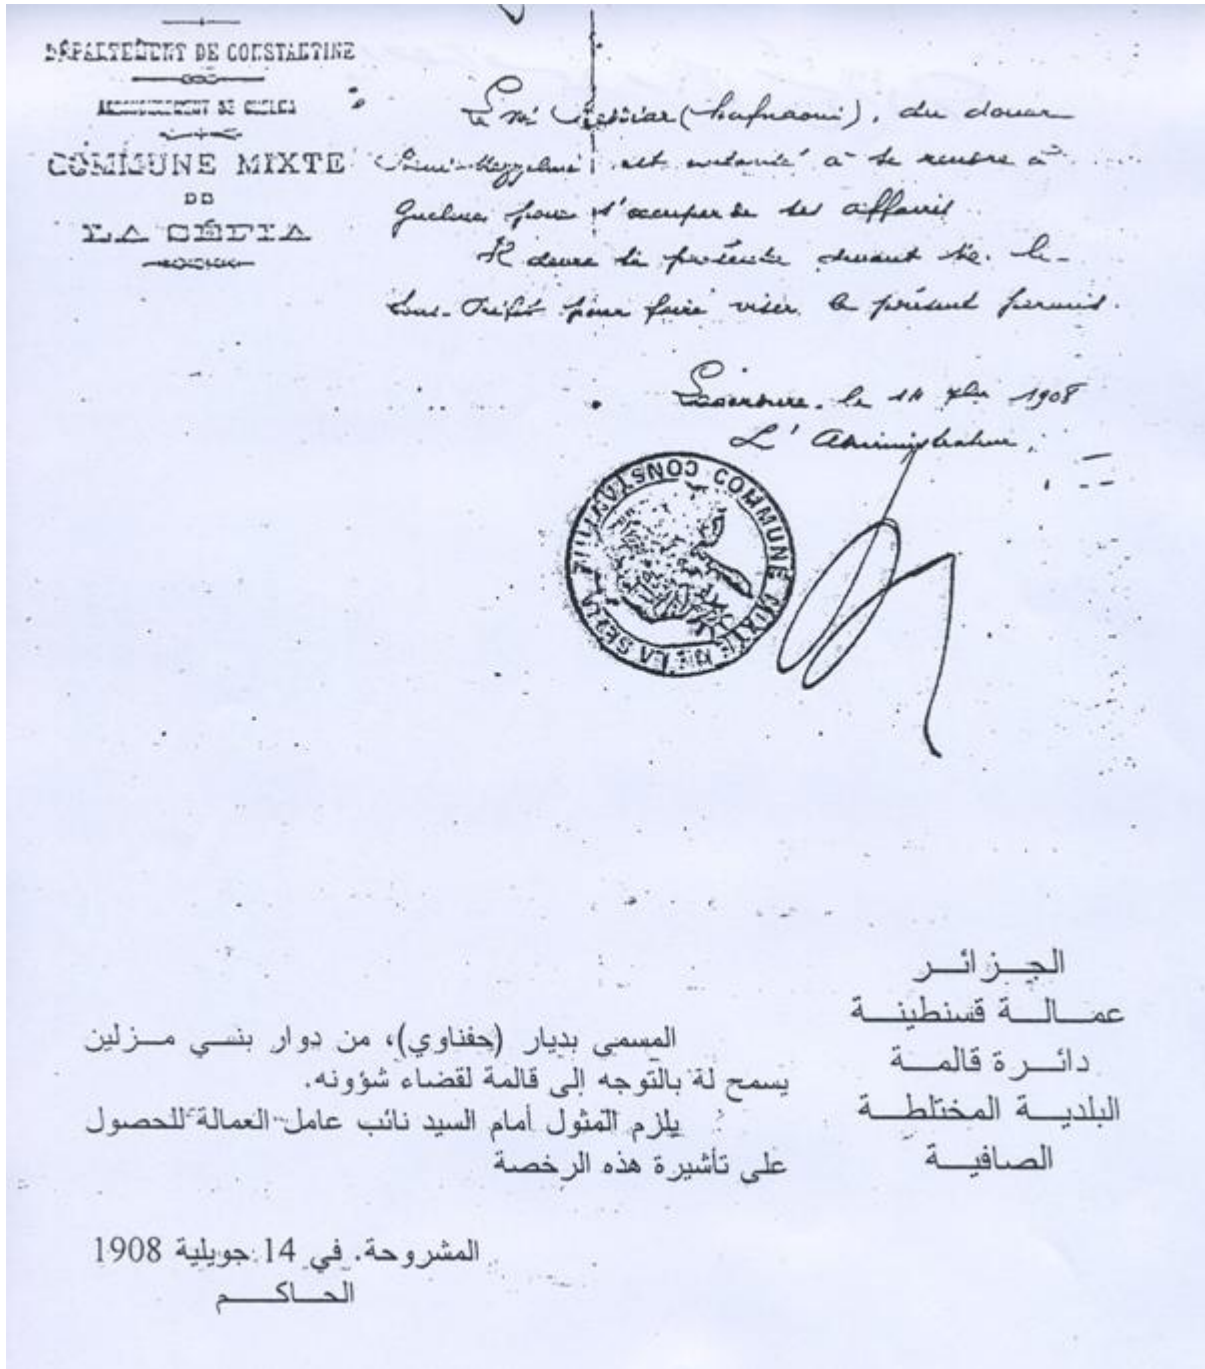 DÉPARTEMENT DE CONSTANTINE
ARRONDISSEMENT DE GUELMA
COMMUNE MIXTE
DE
LA SÉFIA
Le né (hafnaoui), du douar
est autorisé à se rendre à
Guelma pour s'occuper de ses affaires
Il devra se présenter devant le
Sous-Préfet pour faire viser le présent permis.
le 14 1908
L'Administrateur
COMMUNE MIXTE DE LA SEFIA CONSTANTINE
الجزائر
عمالة قسنطينة
دائرة قالمة
البلدية المختلطة
الصافية
المسمى بديار (حفناوي)، من دوار بنسي مزلين
يسمح لة بالتوجه إلى قالمة لقضاء شؤونه.
يلزم المثول أمام السيد نائب عامل العمالة للحصول
على تأشيرة هذه الرخصة
المشروحة. في 14 جويلية 1908
الحاكم